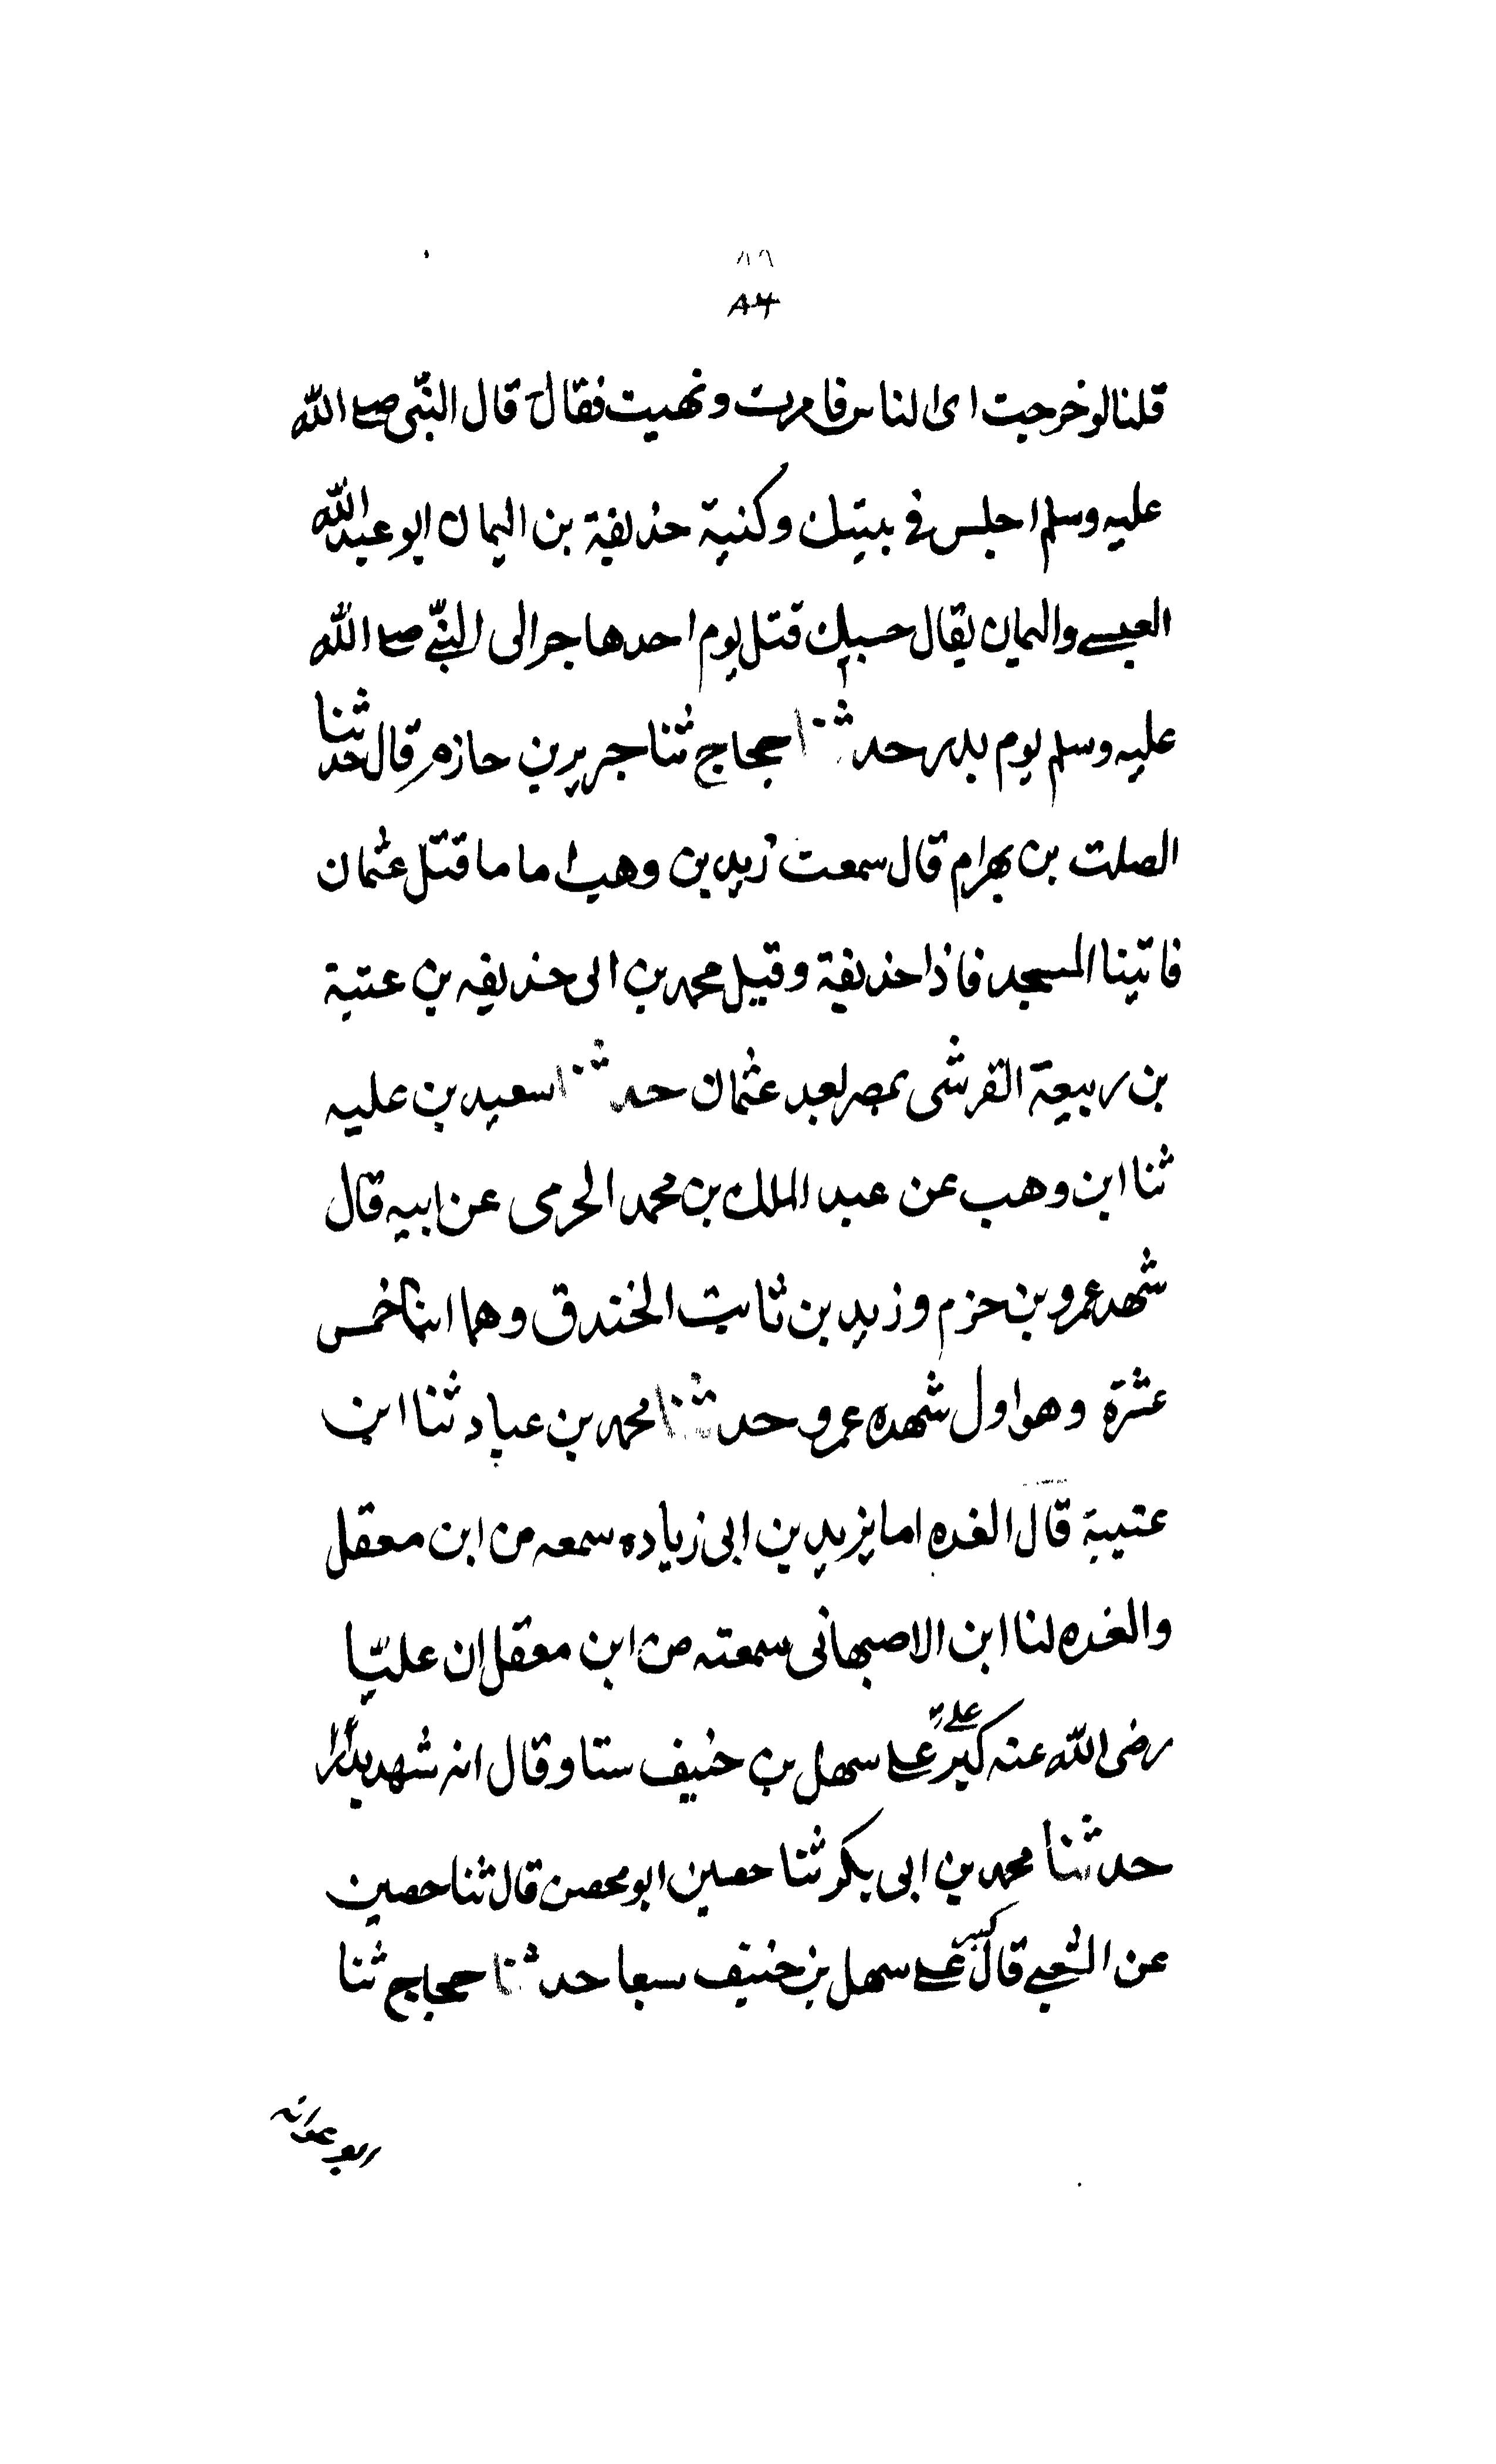 ٨٦
٨٦
قلنا لو خرجت الى الناس فامرت ونهيت فقال قال النبى صلى الله
عليه وسلم اجلس فى بيتك وكنية حذيفة بن اليمان ابو عبد الله
العبسى واليمان يقال حسيل قتل يوم احد هاجر الى النبى صلى الله
عليه وسلم يوم بدر حدثنا حجاج ثنا جرير بن حازم قال حدثنا
الصلت بن بهرام قال سمعت زيد بن وهب اما ما قتل عثمان
فاتينا المسجد فاذا حذيفة وقيل محمد بن ابى حذيفه بن عتبة
بن ربيعة القرشى بمصر بعد عثمان حدثنا سعيد بن عليه
ثنا ابن وهب عن عبد الملك بن محمد الحرمى عن ابيه قال
شهد عمرو بن حزم وزيد بن ثابت الخندق وهما ابنا خمس
عشرة وهو اول شهده عمرو حدثنا محمد بن عباد ثنا ابن
عتيبة قال الغده اما يزيد بن ابى زياده سمعه من ابن معقل
والغده لنا ابن الاصبهانى سمعته من ابن معقل ان عليّا
رضى الله عنه كبر على سهل بن حنيف ستا وقال انه شهد بدرا
حدثنا محمد بن ابى بكر ثنا حصين ابو محصن قال ثنا حصين
عن الشعبى قال كبر على سهل بن حنيف سبعا حدثنا حجاج ثنا
ابو عوانه